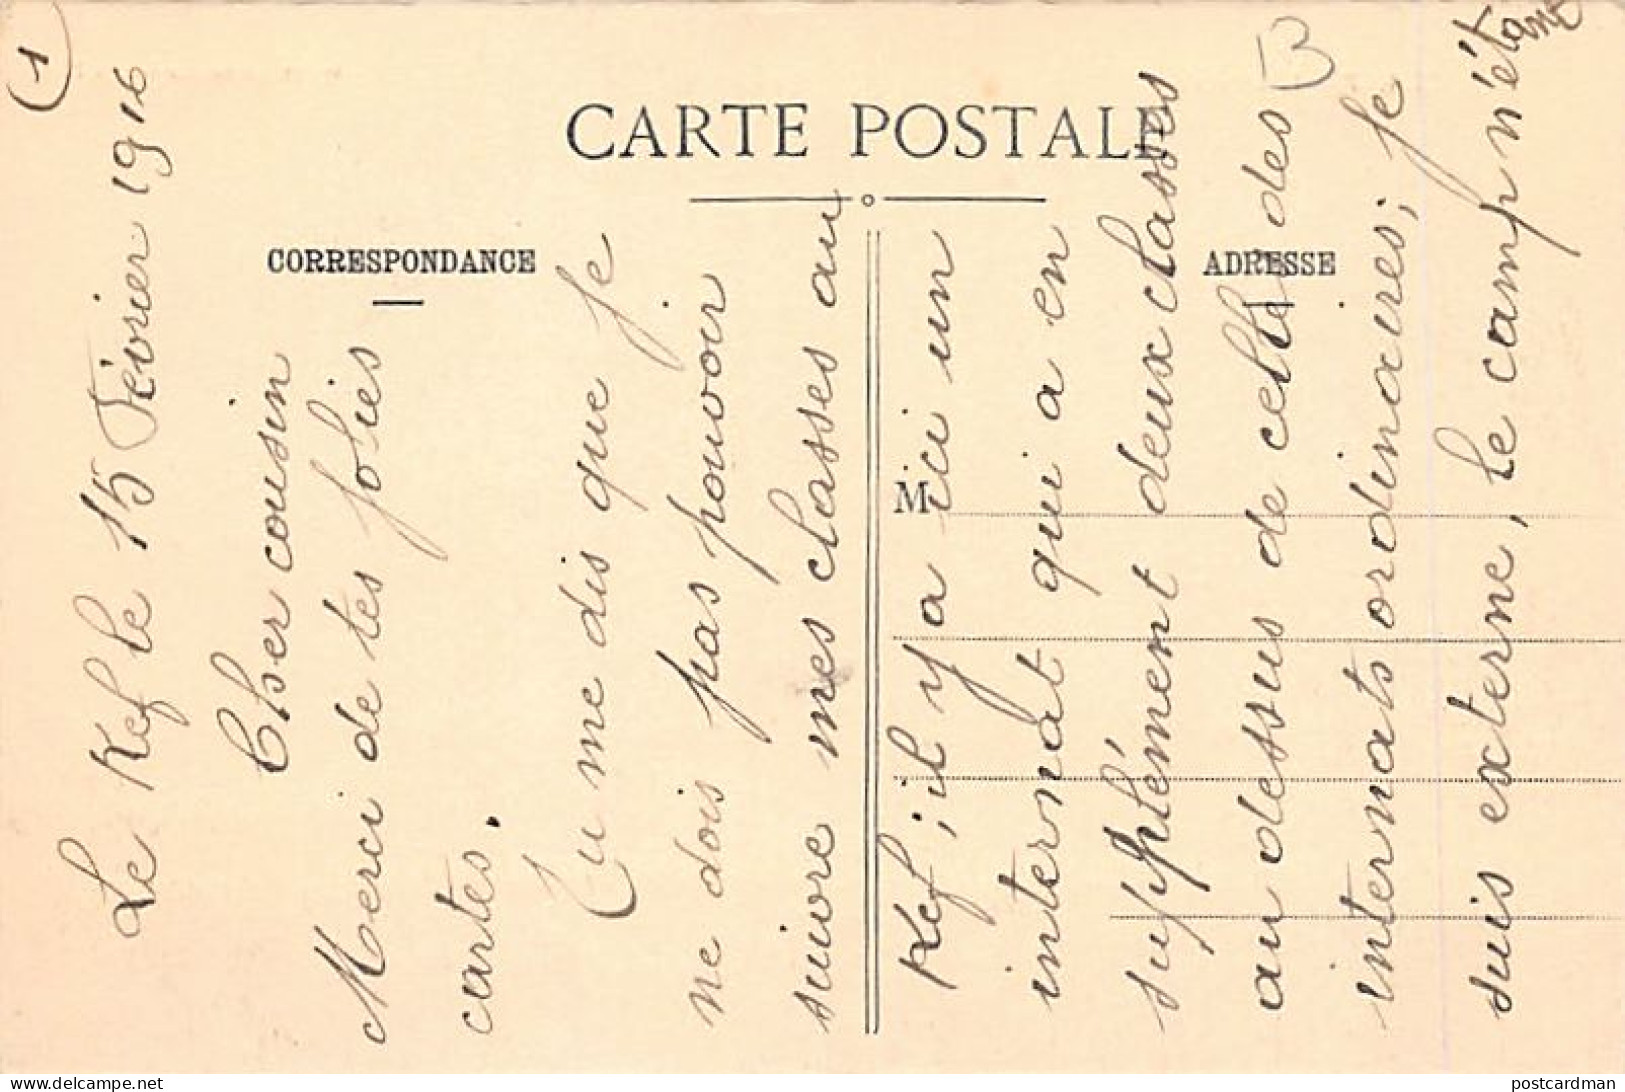 1
CARTE POSTALE
CORRESPONDANCE
ADRESSE
M
Le Kef le 15 Février 1916
Cher cousin
Merci de tes jolies
cartes.
Tu me dis que je
ne dois pas pouvoir
suivre mes classes au
Kef ; il y a ici un
internat qui a en
supplément deux classes
au dessus de celle des
internats ordinaires; je
suis externe, le camp n'étant
delcampe.net
postcardman